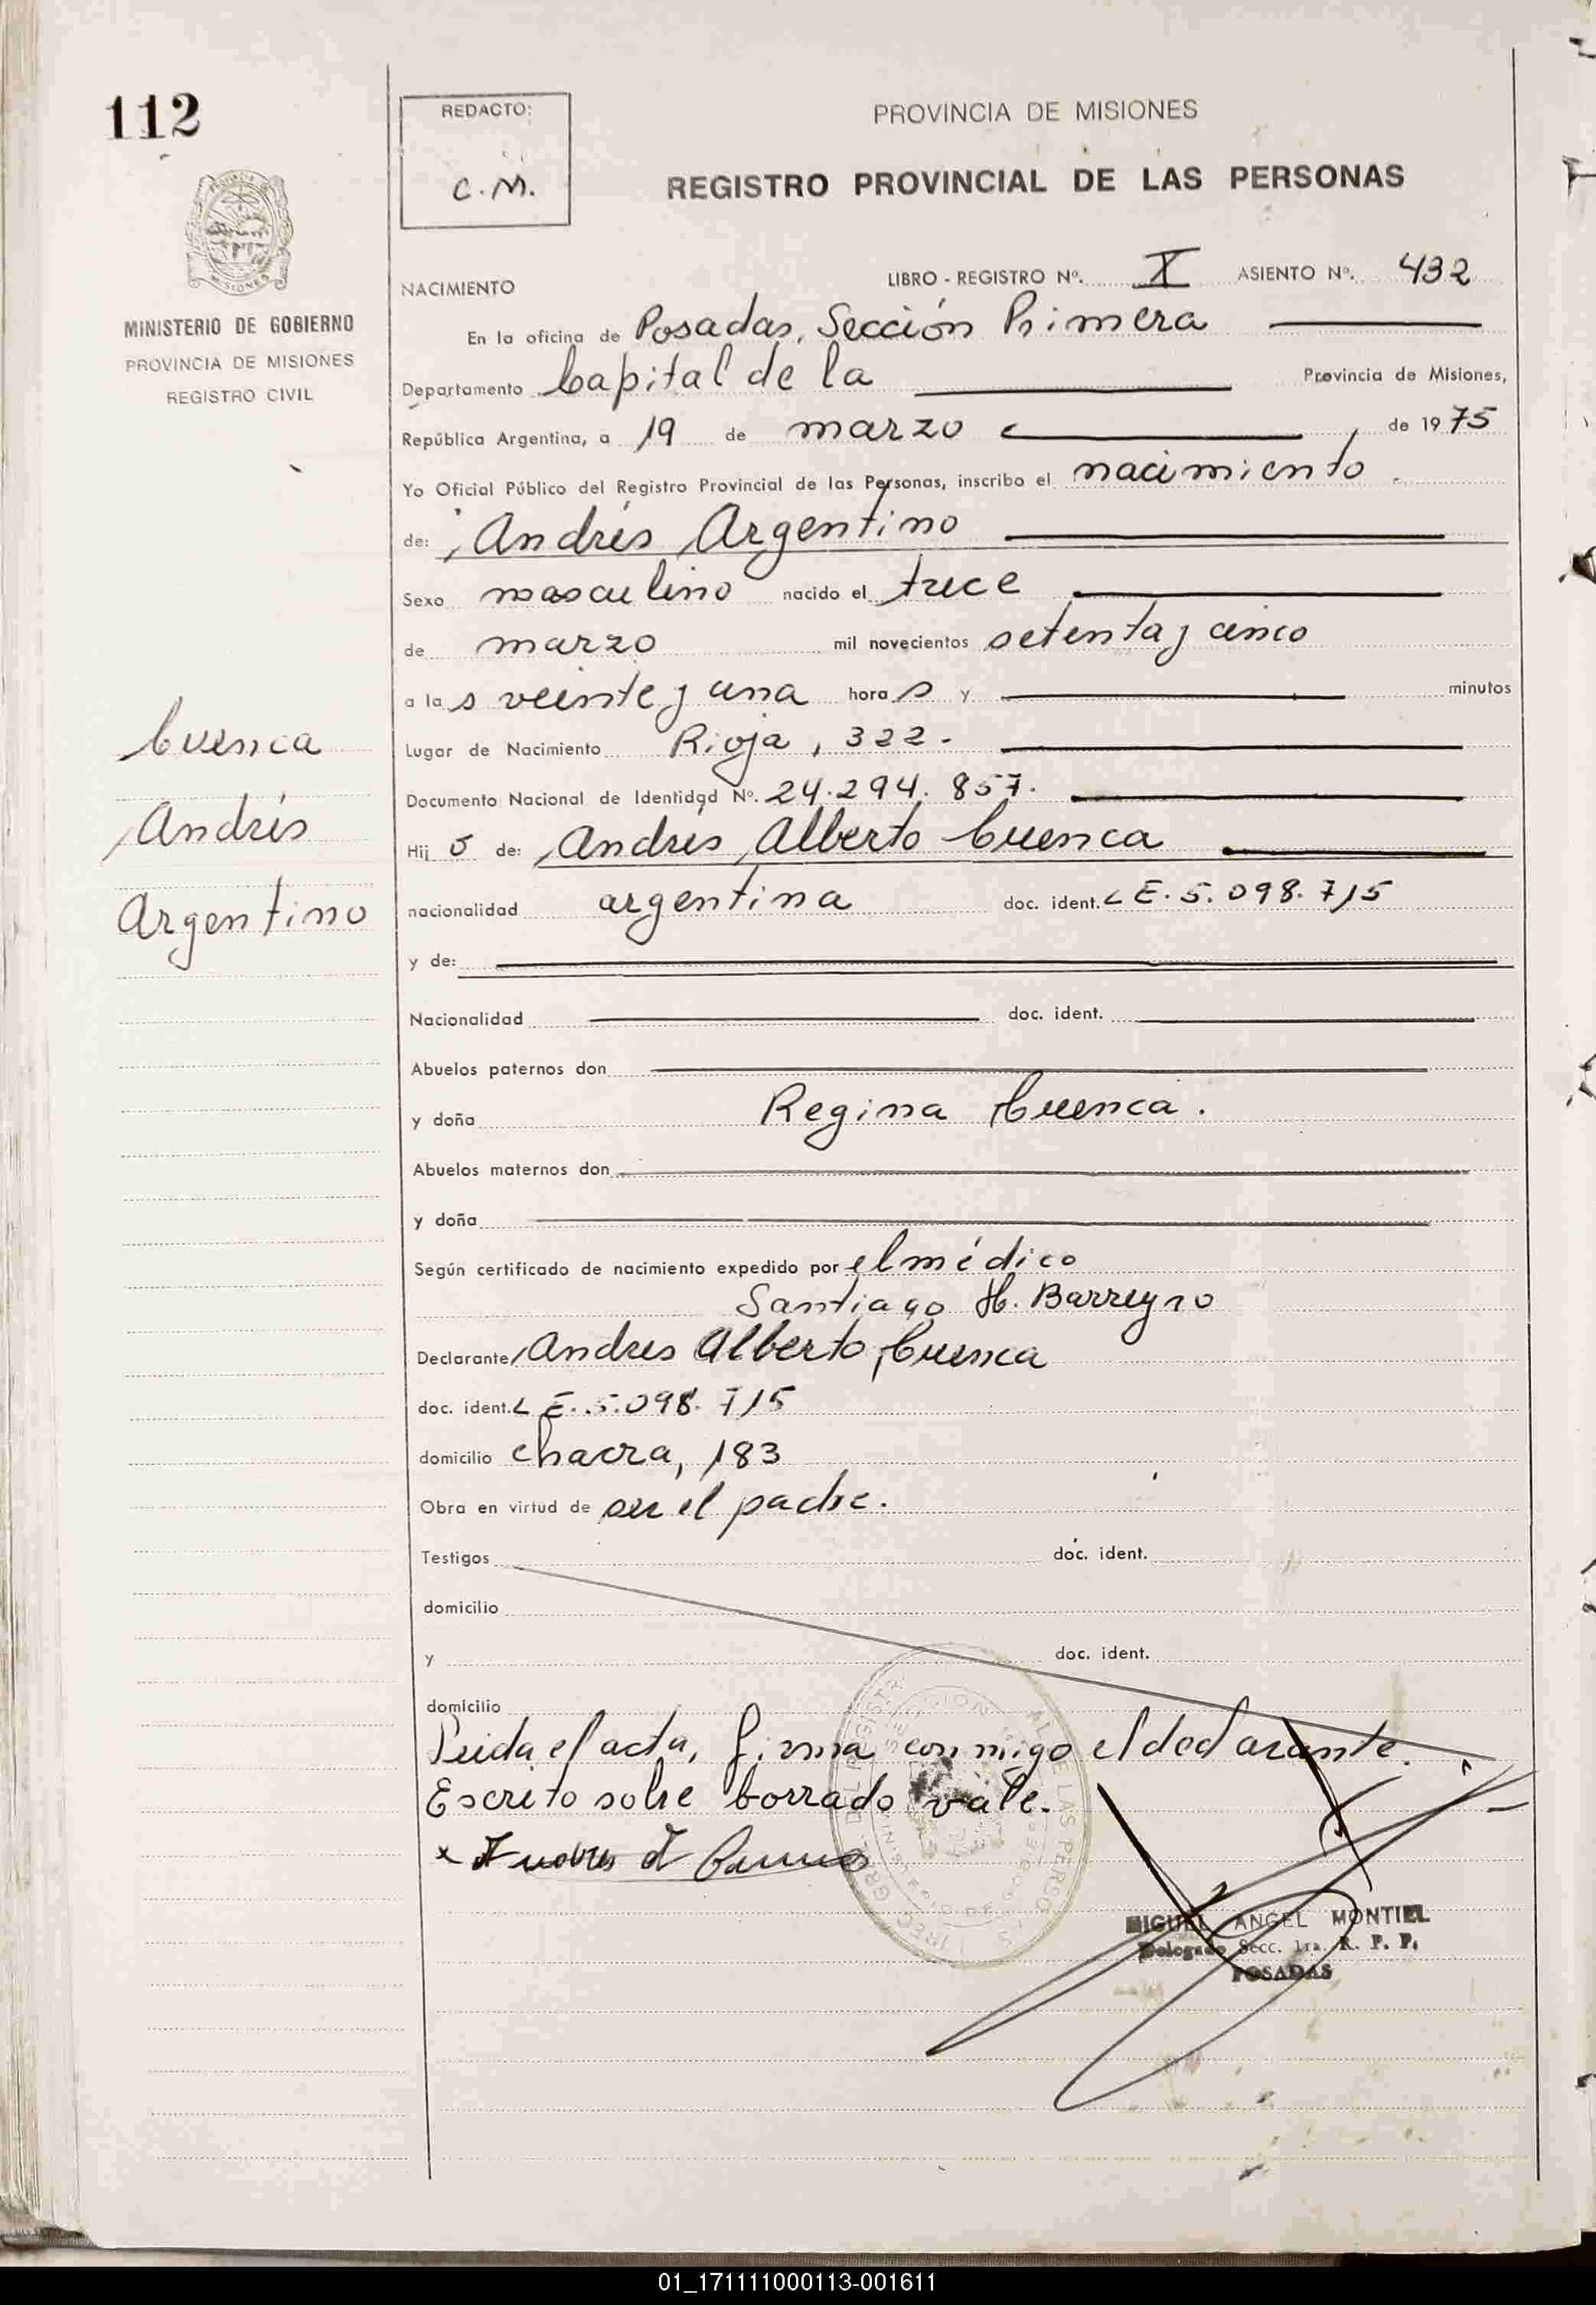 112
MINISTERIO DE GOBIERNO
PROVINCIA DE MISIONES
REGISTRO CIVIL
Cuenca
Andrés
Argentino
REDACTO:
C.M.
PROVINCIA DE MISIONES
REGISTRO PROVINCIAL DE LAS PERSONAS
NACIMIENTO LIBRO - REGISTRO Nº. X ASIENTO Nº. 432
En la oficina de Posadas, Sección Primera
Departamento Capital de la Provincia de Misiones,
República Argentina, a 19 de marzo de 1975
Yo Oficial Público del Registro Provincial de las Personas, inscribo el nacimiento
de: Andrés Argentino
Sexo masculino nacido el trece
de marzo mil novecientos setenta y cinco
a las veinte y una horas y minutos
Lugar de Nacimiento Rioja, 322.
Documento Nacional de Identidad Nº. 24.294.857.
Hijo de: Andrés Alberto Cuenca
nacionalidad argentina doc. ident. L E. 5.098.715
y de:
Nacionalidad doc. ident.
Abuelos paternos don
y doña Regina Cuenca.
Abuelos maternos don
y doña
Según certificado de nacimiento expedido por el médico
Santiago H. Barreyro
Declarante Andres Alberto Cuenca
doc. ident. L E. 5.098.715
domicilio chacra, 183
Obra en virtud de ser el padre.
Testigos doc. ident.
domicilio
y doc. ident.
domicilio
Leida el acta, firma conmigo el declarante.
Escrito sobre borrado vale.
MIGUEL ANGEL MONTIEL
Delegado Secc. 1ra. R. P. P.
POSADAS
01_171111000113-001611